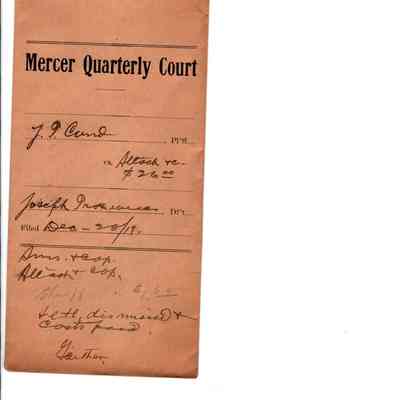 Mercer Quarterly Court
J. P. Cund Pltff.
vs Attach & c.
$26.00
Joseph Dft.
Filed Dec - 20/19.
Sum. & Cop.
Attach & Cop.
Settled, dismissed &
costs paid.